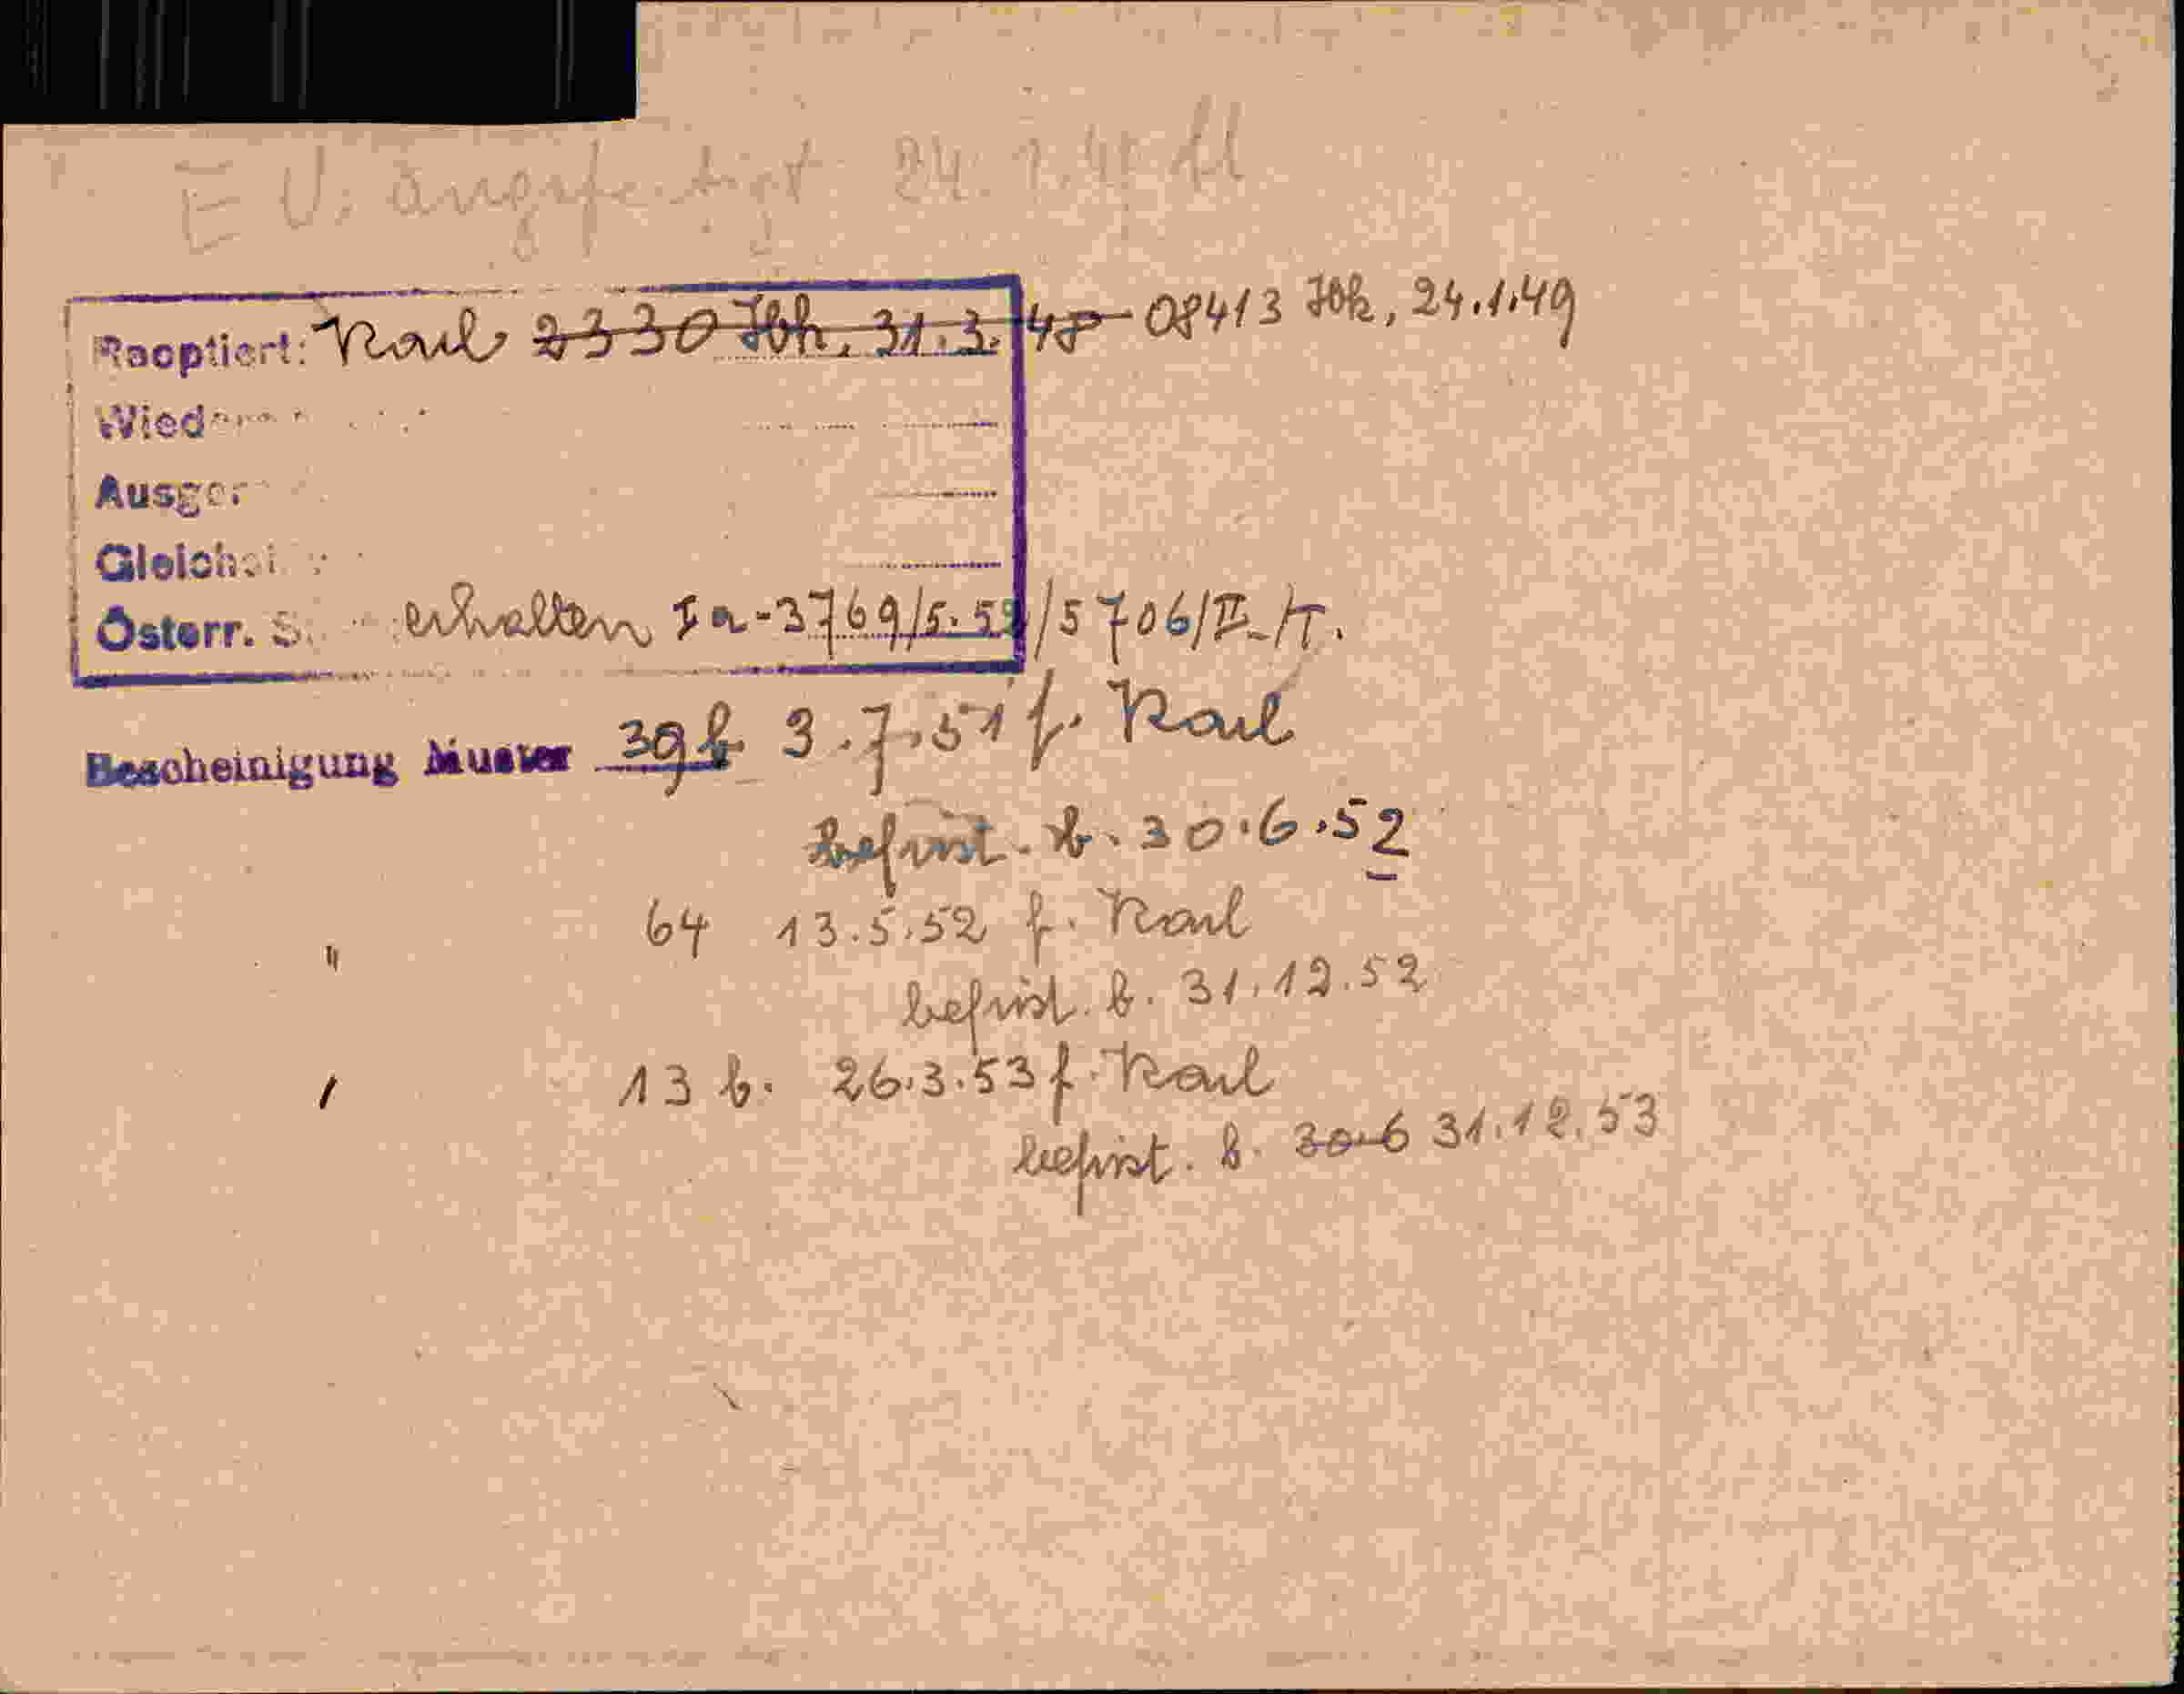 E U. angefertigt 24.1.49
Reoptiert: Karl 2330 Jbk, 31.3.48 08413 Jbk, 24.1.49
Wieder
Ausge
Gleich
Österr. S. erhalten I a-3769/5.52/5706/II-/T.
Bescheinigung Muster 39b 3.7.51 f. Karl
befrist. b. 30.6.52
" 64 13.5.52 f. Karl
befrist. b. 31.12.52
13 b. 26.3.53 f. Karl
befrist. b. 30.6 31.12.53